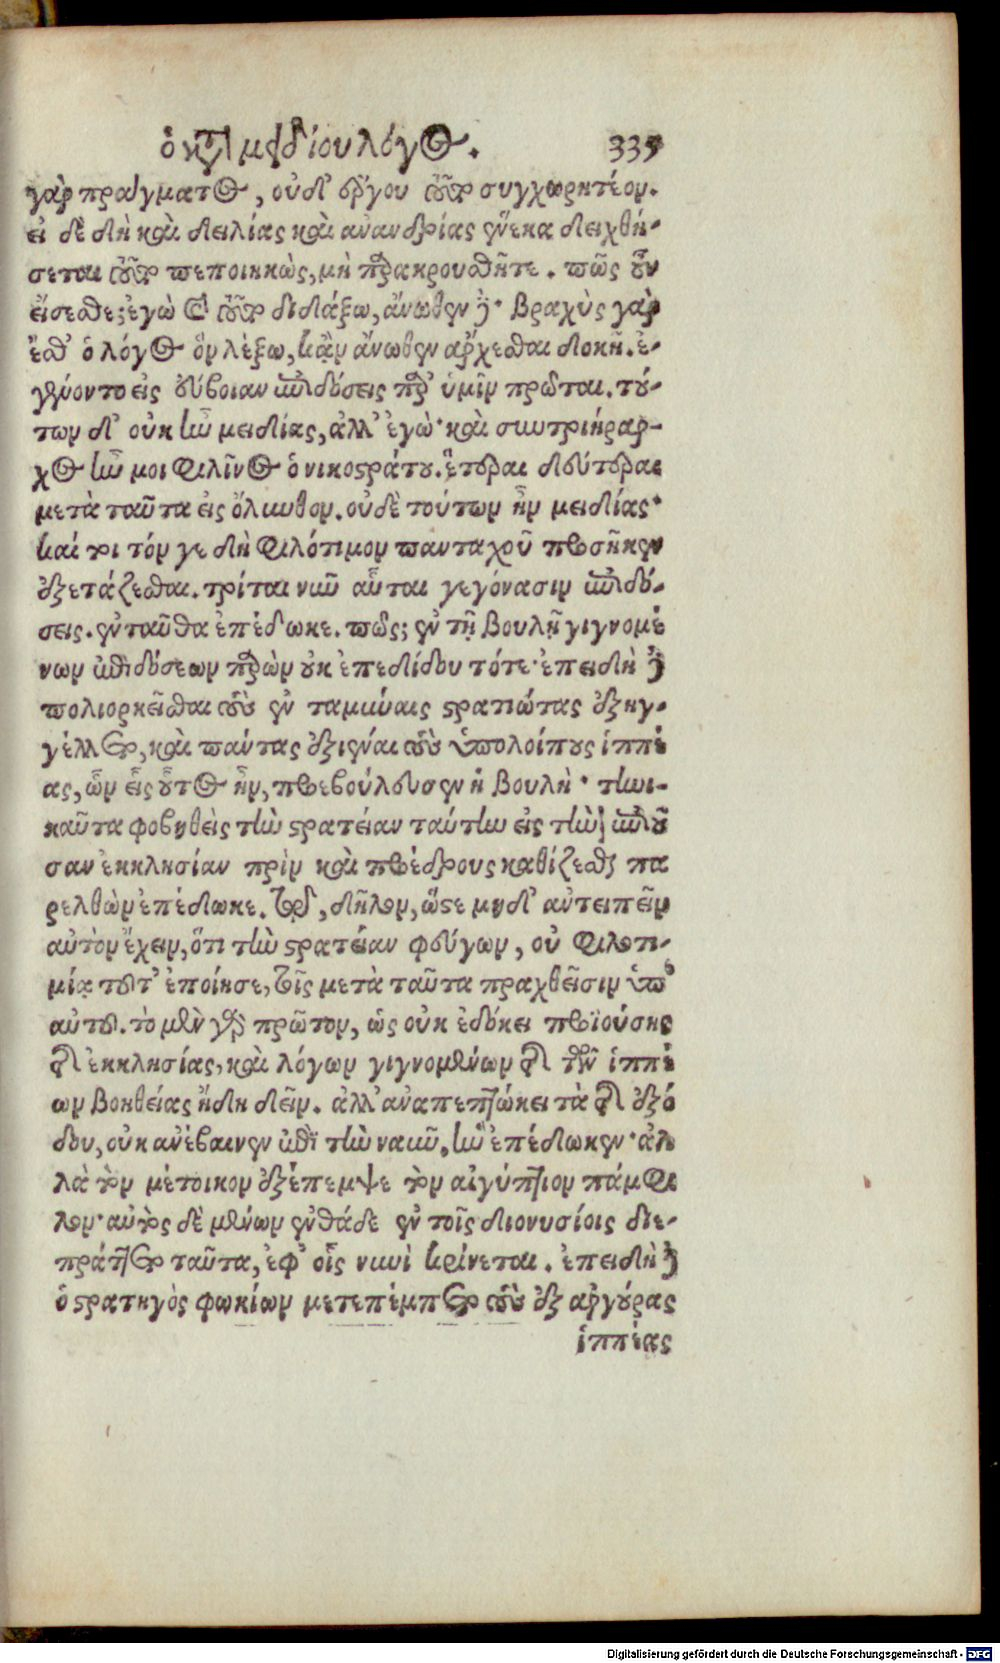 ὁ κατὰ μειδίου λόγος. 335
γὰρ πράγματος, οὐδ' ἔργου τοῦτο συγχωρητέον.
εἰ δὲ δὴ καὶ δειλίας καὶ ἀνανδρίας ἕνεκα δειχθή-
σεται τοῦτο πεποιηκὼς, μὴ παρακρουσθῆτε. πῶς οὖν
εἴσεσθε; ἐγὼ καὶ τοῦτο διδάξω, ἄνωθεν δέ· βραχὺς γὰρ
ἔσθ' ὁ λόγος ὃν λέξω, κἂν ἄνωθεν ἄρχεσθαι δοκῇ. ἐ-
γένοντο εἰς εὔβοιαν ἐπιδόσεις παρ' ὑμῖν πρῶται. τού-
των δ' οὐκ ἦν μειδίας, ἀλλ' ἐγώ· καὶ συντριήραρ-
χος ἦν μοι φιλῖνος ὁ νικοστράτου. ἕτεραι δεύτεραι
μετὰ ταῦτα εἰς ὄλυνθον. οὐδὲ τούτων ἦν μειδίας·
καί τοι τόν γε δὴ φιλότιμον πανταχοῦ προσῆκεν
ἐξετάζεσθαι. τρίται νῦν αὗται γεγόνασιν ἐπιδό-
σεις. ἐνταῦθα ἐπέδωκε. πῶς; ἐν τῇ βουλῇ γιγνομέ
νων ἐπιδόσεων παρὼν οὐκ ἐπεδίδου τότε· ἐπειδὴ δὲ
πολιορκεῖσθαι τοὺς ἐν ταμύναις στρατιώτας ἐξηγ-
γέλλετο, καὶ πάντας ἐξιέναι τοὺς ὑπολοίπους ἱππέ
ας, ὧν εἷς οὗτος ἦν, προεβούλευσεν ἡ βουλὴ· τηνι-
καῦτα φοβηθεὶς τὴν στρατείαν ταύτην εἰς τὴν ἐπιοῦ
σαν ἐκκλησίαν πρὶν καὶ προέδρους καθίζεσθαι πα
ρελθὼν ἐπέδωκε. τῷ, δῆλον, ὥστε μηδ' ἀντειπεῖν
αὐτὸν ἔχειν, ὅτι τὴν στρατείαν φεύγων, οὐ φιλοτι-
μίᾳ τοῦτ' ἐποίησε, τοῖς μετὰ ταῦτα πραχθεῖσιν ὑπ'
αὐτοῦ. τὸ μὲν γὰρ πρῶτον, ὡς οὐκ ἐδόκει προϊούσης
τῆς ἐκκλησίας, καὶ λόγων γιγνομένων τῆς τῶν ἱππέ
ων βοηθείας ἤδη δεῖν. ἀλλ' ἀναπεπτώκει τὰ τῆς ἐξό
δου, οὐκ ἀνέβαινεν ἐπὶ τὴν ναῦν, ἣν ἐπέδωκεν· ἀλ
λὰ τὸν μέτοικον ἐξέπεμψε τὸν αἰγύπτιον πάμφι
λον· αὐτὸς δὲ μένων ἐνθάδε ἐν τοῖς διονυσίοις διε-
πράττετο ταῦτα, ἐφ' οἷς νυνὶ κρίνεται. ἐπειδὴ δὲ
ὁ στρατηγὸς φωκίων μετεπέμπετο τοὺς ἐξ ἀργούρας
ἱππέας
Digitalisierung gefördert durch die Deutsche Forschungsgemeinschaft - DFG